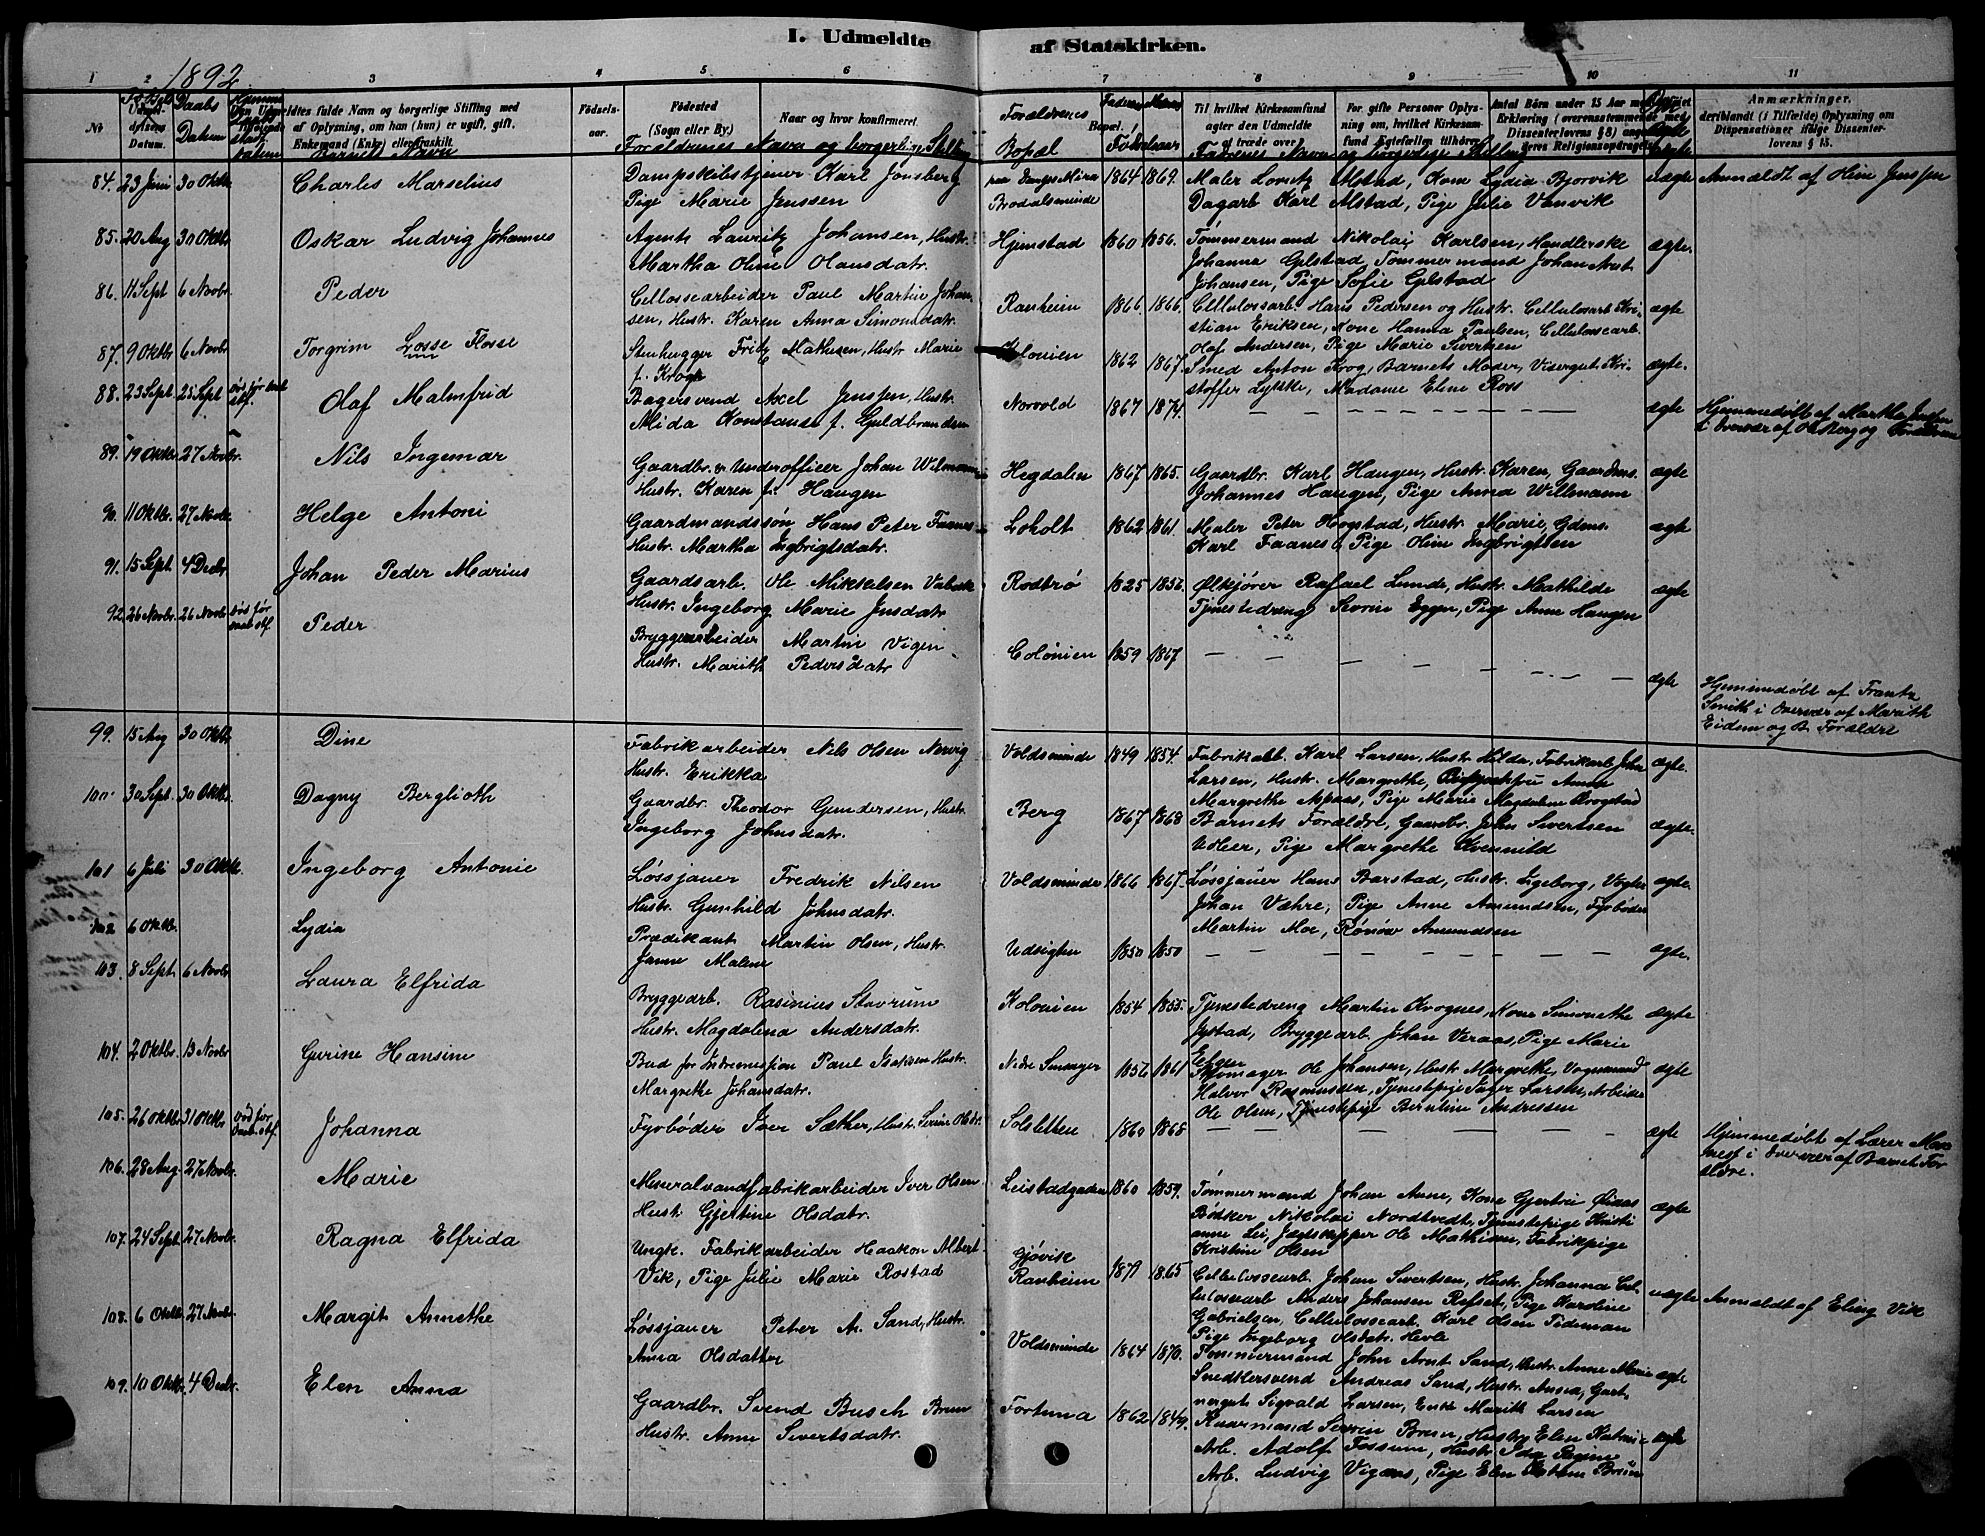 I. Udmeldte af Statskirken.
1892
1 2 3 4 5 6 7 8 9 10 11
No
Daabs Datum
Udmeldelsens Datum.
Udmeldtes fulde Navn og borgerlige Stilling med
af Oplysning, om han (hun) er ugift, gift,
Enkemand (Enke) eller fraskilt.
Barnets Navn
Födsels-
aar.
Födested
(Sogn eller By.)
Naar og hvor konfirmeret.
Forældrenes Navn og borgerlige Stilling
Forældrenes
Bopæl
Bopæl.
Faderens Moderens
Fødselsaar
Til hvilket Kirkesamfund
agter den Udmeldte
at træde over
For gifte Personer Oplys-
ning om, hvilket Kirkesam-
fund Ægtefællen tilhörer.
Faddernes Navn og borgerlige Stilling
Antal Börn under 15 Aar med
Erklæring (overensstemmende med
Dissenterlovens § 8) ang.
deres Religionsopdragelse.
Anmærkninger,
deriblandt (i Tilfælde) Oplysning om
Dispensationer ifölge Dissenter-
lovens § 15.
84. 23 Juni 30 Oktbr Charles Marselius
Dampskibstjener Karl Jonsberg
Pige Marie Jenssen
Brodalsminde 1864 1869.
Maler Lovitz Alstad, Kone Lydia Bjorvik
Dagarb Karl Alstad, Pige Julie Vanvik
uægte Anmældt af Oline Jenssen
85. 20 Aug 30 Oktbr Oskar Ludvig Johannes
Agent Lauritz Johansen, Hustr.
Martha Oline Olausdatr.
Hjemstad 1860 1856.
Tømmermand Nikolai Karlsen, Handlerske
Johanna Gjelstad, Tømmermand Johan Arnt
Johansen, Pige Sofie Gjelstad
ægte.
86. 11 Sept 6 Novbr Peder
Cellosearbeider Paul Martin Johan-
sen, Hustr. Karen Anna Simonsdatr.
Ranheim 1866 1866.
Cellulosarb. Hans Pedersen og Hustr. Cellulosarb Kri-
stian Eriksen, Kone Hanna Paulsen, Cellulosearb.
Olaf Andersen, Pige Marie Sivertsen
ægte
87. 9 Oktbr 6 Novbr. Torgrim Losse Flosse
Stenhugger Fritz Mathisen, Hustr Marie
f. Krogh
Kolonien 1862 1867.
Smed Anton Krog, Barnets Moder, Visergut Kri-
stoffer Lykke, Madame Eline Ross
ægte.
88. 23 Sept 25 Sept Olaf Malmfrid
Bagersvend Axel Jenssen, Hustr.
Mida Konstanse f. Guldbrandsen
Norvold 1867 1874.
ægte Hjemmedøbt af Martha Jenssen
i Overvær af Olsberg og Forældrene
89. 19 Oktbr 27 Novbr. Nils Ingemar
Gaardbr. & Underofficer Johan Wilmann
Hustr. Karen f. Haugen
Hegdalen 1867 1865.
Gaardbr. Karl Haugen, Hustr. Karen, Gaardms.
Johannes Haugen, Pige Anna Willmann
ægte
90. 11 Oktbr. 27 Novbr. Helge Antoni
Gaardmandssøn Hans Peter Faanes
Hustr. Martha Ingbrigtsdatr.
Loholt 1862 1861.
Maler Peter Krogstad, Hustr. Marie, Gdms.
Karl Faanes & Pige Oline Ingbrigtsen
ægte
91. 15 Sept. 4 Decbr Johan Peder Marius
Gaardsarb. Ole Mikkelsen
Hustr. Ingeborg Marie Jensdatr
Rodbrø 1825 1852.
Ølkjører Rafael Lunde, Hustr. Mathilde
Tjenestedreng Sivrin Eggen, Pige Anne Haugen
ægte
92. 26 Novbr. 26 Novbr Peder
Bryggearbeider Martin Vigen
Hustr. Marith Pedersdatr
Colonien 1859 1867
ægte Hjemmedøbt af Frantz
Smith i Overvær af Marith
Eidem og B. Forældre
99. 15 Aug 30 Oktbr Dine
Fabrikarbeider Nils Olsen Norvig
Hustr. Erikka
Voldsminde 1849 1854.
Fabrikarb. Karl Larsen, Hustr Hilda, Fabrikarb John
Larsen, Hustr. Margrethe, Anna
Margrethe Aspaas, Pige Marie Magdalene Krogstad
ægte.
100. 30 Sept. 30 Oktbr. Dagny Berglioth
Gaardbr. Theodor Gundersen, Hustr.
Ingeborg Johnsdatr.
Berg 1867 1868
Barnets Forældre, Gaardbr. John Sivertsen
Udler, Pige Margrethe Kvennild
ægte.
101 6 Juli 30 Oktbr. Ingeborg Antonie
Løssjauer Fredrik Nilsen
Hustr. Gunhild Johnsdatr.
Voldsminde 1866 1867.
Løssjauer Hans Barstad, Hustr. Ingeborg, Vogter
Johan Væhre, Pige Anne Amundsen, Fyrbøder
Martin Moe, Rønøw Amundsen
ægte.
102 6 Oktbr. Lydia
Prædikant Martin Olsen, Hustr.
Janna Maline
Udsigten 1850 1850
ægte.
103. 8 Sept. 6 Novbr. Laura Elfrida
Bryggearb. Rasinius Stavrum
Hustr. Magdalena Andersdatr.
Kolonien 1854 1855.
Tjenestedreng Martin Krognes, Kone Simonethe
Jystad, Bryggearb. Johan Veraas, Pige Marie
Eggen
ægte
104. 2 Oktbr. 13 Novbr Gurine Hansine
Bud for Indremission Paul Isaksen Hustr.
Margrethe Johansdatr.
Nedre Singsager 1856 1861
Skomager Ole Johansen, Hustr Margrethe, Vognmand
Halvor Rasmussen, Tjenestepige Inger Larsen, Arbeider
Ole Olsen, Tjenestepige Berntine Andressen
ægte
105. 26 Oktbr 31 Oktbr Johanna
Fyrbøder Iver Sæther, Hustr. Serine Olsdr.
Solsletten 1860 1868
ægte Hjemmedøbt af Lærer
i Overvær af Barnets For
ældre.
106. 28 Aug. 27 Novbr. Marie
Mineralvandfabrikarbeider Iver Olsen
Hustr. Gjertine Olsdatr.
Leistadgaden 1860 1859.
Tømmermand Johan Aune, Kone Gjertrei Øiaas
Bødker Nikolai Nordtvedt, Tjenestepige Kristi
anne Lei, Jægtskipper Ole Mathisen, Fabrikpige
Kristine Olsen
ægte
107. 24 Sept. 27 Novbr. Ragna Elfrida
Ungk. Fabrikarbeider Haakon Albert
Vik, Pige Julie Marie Rostad
Gjøvik
Ranheim 1871 1865
Cellulosearb. Johan Sivertsen, Hustr. Johanna Cel-
lulosearb Anders Johansen Refset, Pige Karoline
Gabrielsen, Cellulosearb. Karl Olsen Tideman
Pige Ingeborg Olsdatr. Hevle
uægte Anmeldt af Eling Vik
108. 6 Oktbr 27 Novbr. Margit Annethe
Løssjauer Peter A. Sand, Hustr.
Anna Olsdatter
Voldsminde 1864 1870.
Tømmermand John Arnt Sand, Hustr Anne Marie
Snedkersvend Andreas Sand, Hustr. Ansed, Gart-
nergut Sigvald Larsen, Enke Marith Larsen
ægte
109. 10 Oktbr. 4 Decbr. Elen Anna
Gaardbr. Svend Busch Brun
Hustr. Anne Sivertsdatr.
Fortuna 1862 1849.
Kaarmand Sevrin Bruun, Hustru Elen Katrine
Arb. Adolf Fossum, Hustr Ida Regine
Arb. Ludvig Vigaas, Pige Elen Bruun
ægte